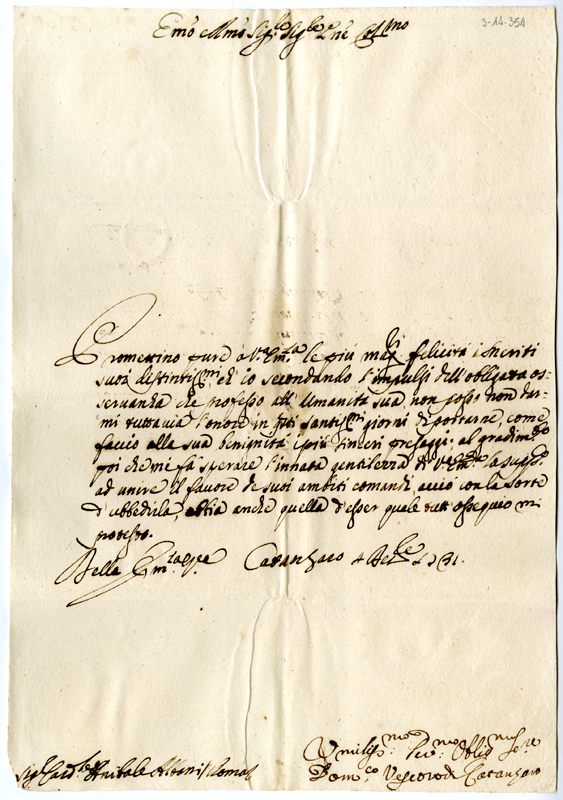 3-14-354
Emo e Rmo Sig.re Sig.re P̃ne Col.mo
Promettino pure a V.ra Em.za le più mag.ri felicità i meriti
suoi distintiss.mi, ch'io secondando l'impulsi dell'obligata os-
servanza che professo all'Umanità sua, non posso non dar-
mi tuttavia l'onore in q.ti santiss.mi giorni di portarne, come
faccio alla sua benignità i più sinceri presaggi: al gradim.to
poi che mi fà sperare l'innata gentilezza di V.ra Em.za la suppco
ad unire il favore de suoi ambiti comandi, acciò con la sorte
d'ubbedirla, abbia anche quella d'esser quale con tutt'ossequio mi
protesto.
Della Em.za V.ra Catanzaro 4 Xbre 1731.
Umiliss.mo Div.mo Oblig.mo Serre
Sig.r Card.le Anibale Albani Roma
Dom.co Vescovo di Catanzaro